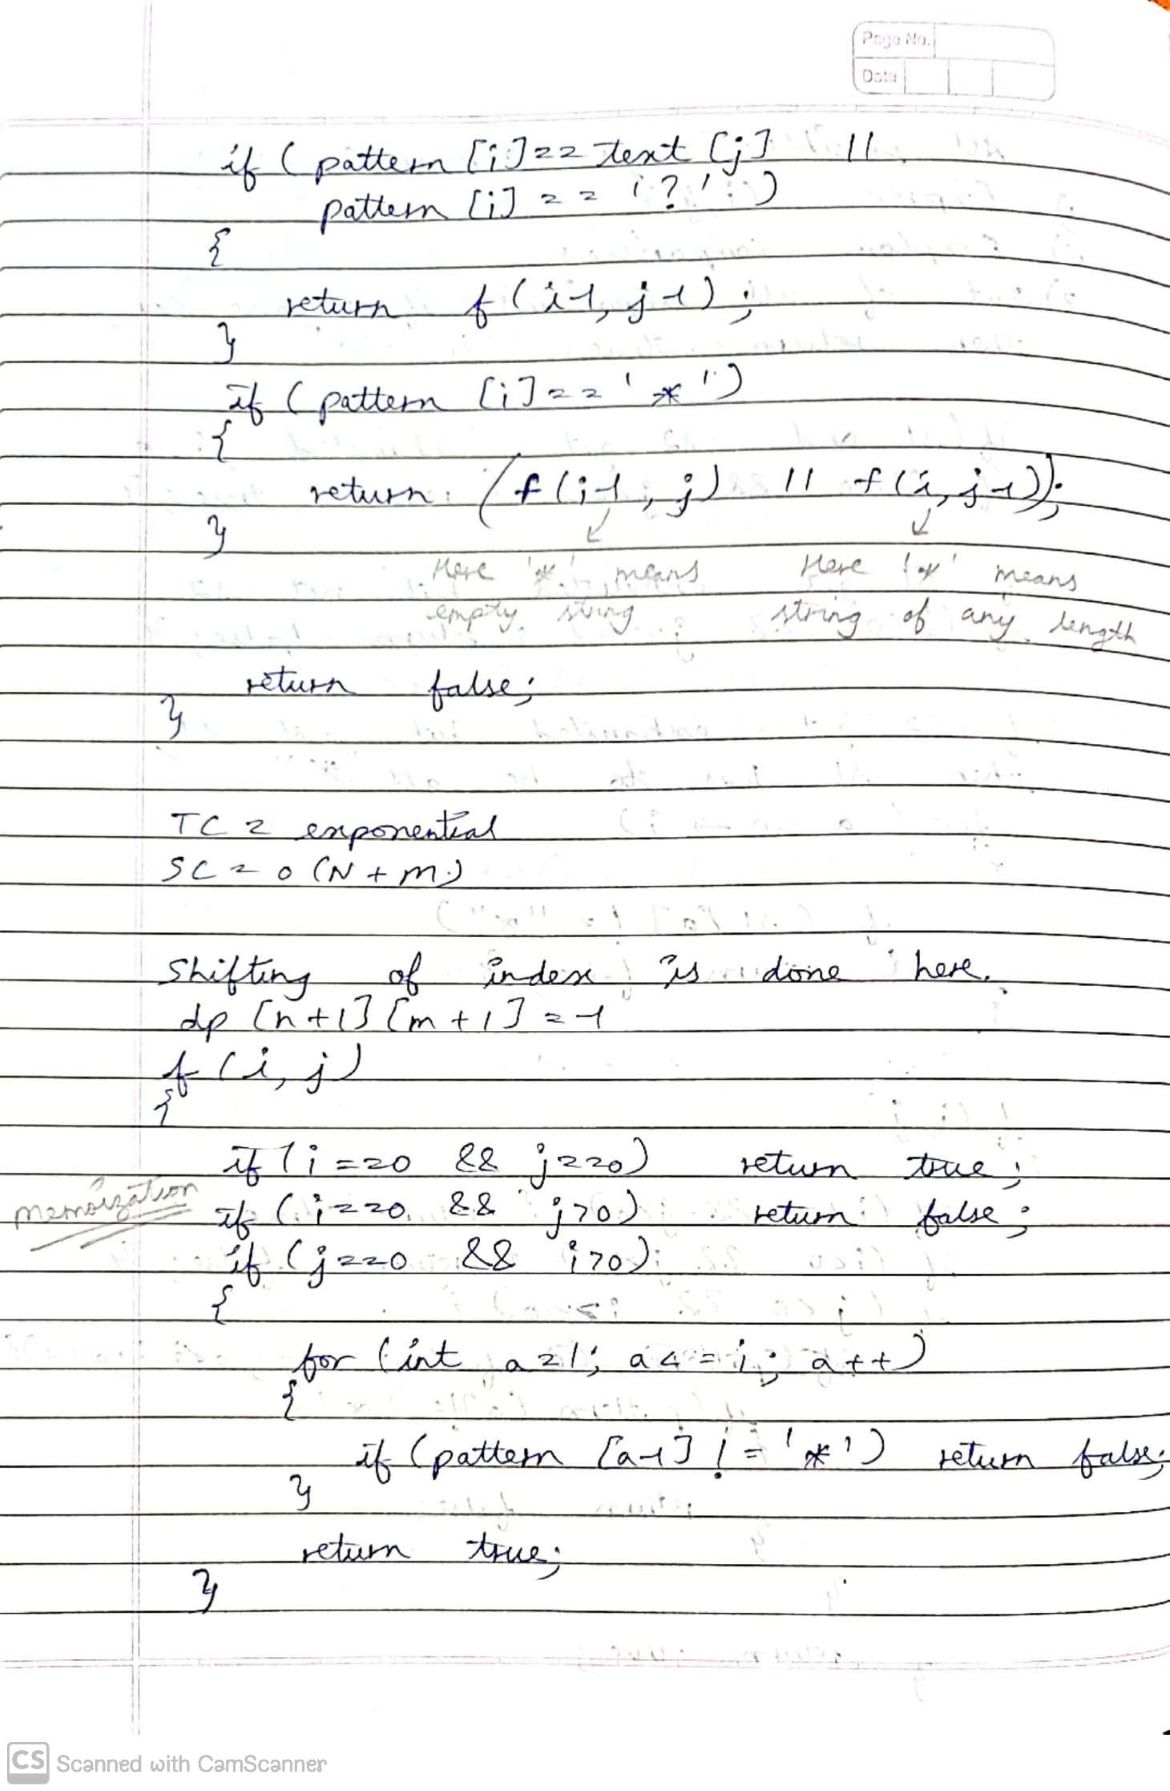 Page No.
Date
if ( pattern [i] == text [j] ||
pattern [i] == '?' )
{
return f(i-1, j-1);
}
if ( pattern [i] == '*' )
{
return (f(i-1, j) || f(i, j-1));
}
Here '*' means Here '*' means
empty string string of any length
return false;
}
TC = exponential
SC = O (N + M)
Shifting of index is done here.
dp [n+1] [m+1] = -1
f (i, j)
{
if (i == 0 && j == 0) return true;
memoization if (i == 0 && j > 0) return false;
if (j == 0 && i > 0)
{
for (int a = 1; a <= i; a++)
{
if (pattern [a-1] != '*') return false;
}
return true;
}
CS Scanned with CamScanner